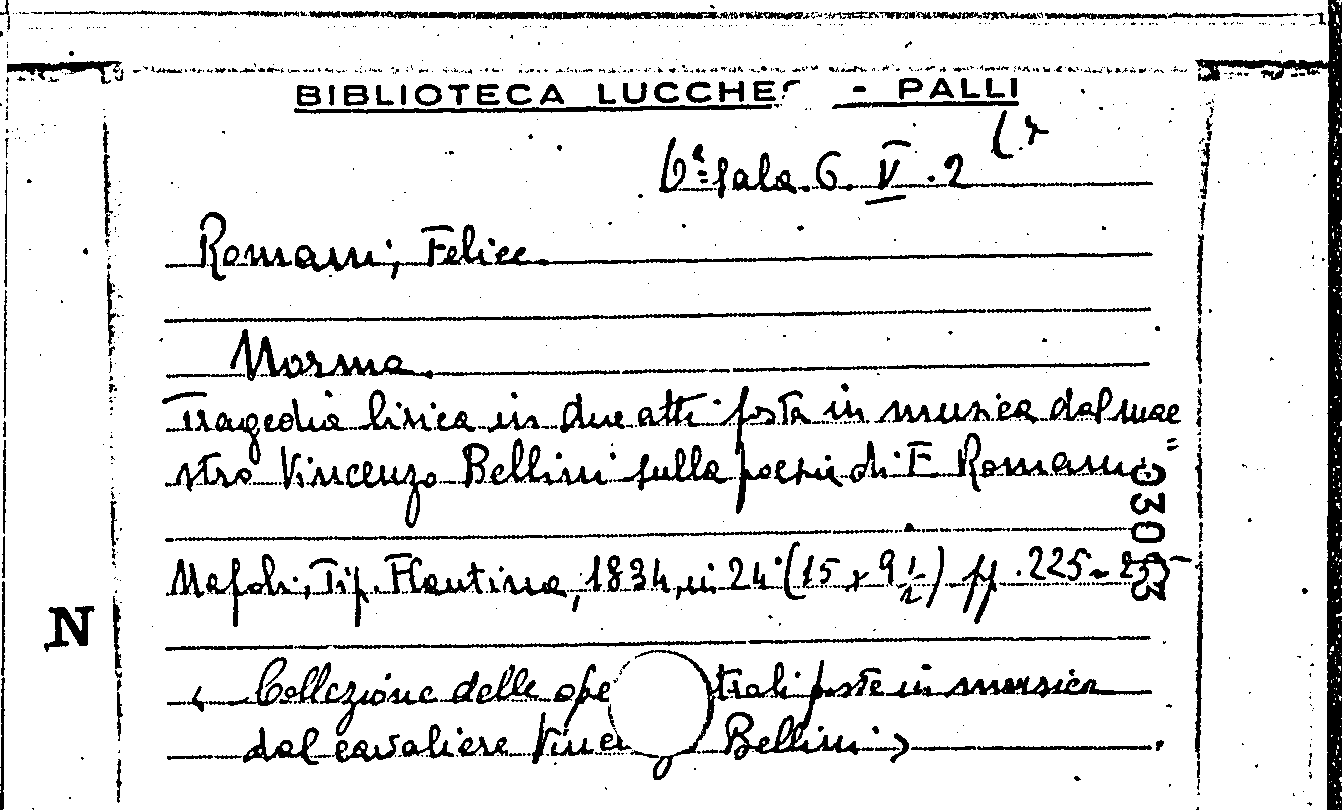 BIBLIOTECA LUCCHES - PALLI
6ª Sala. G. V. 2
Romani, Felice.
Norma.
Tragedia lirica in due atti posta in musica dal mae=
stro Vincenzo Bellini sulla poesia di F. Romani.
Napoli, Tip. Flautina, 1834, in 24° (15 x 9 1/2) pp. 225-
N
( Collezione delle ope trali poste in musica
dal cavaliere Vincen Bellini )